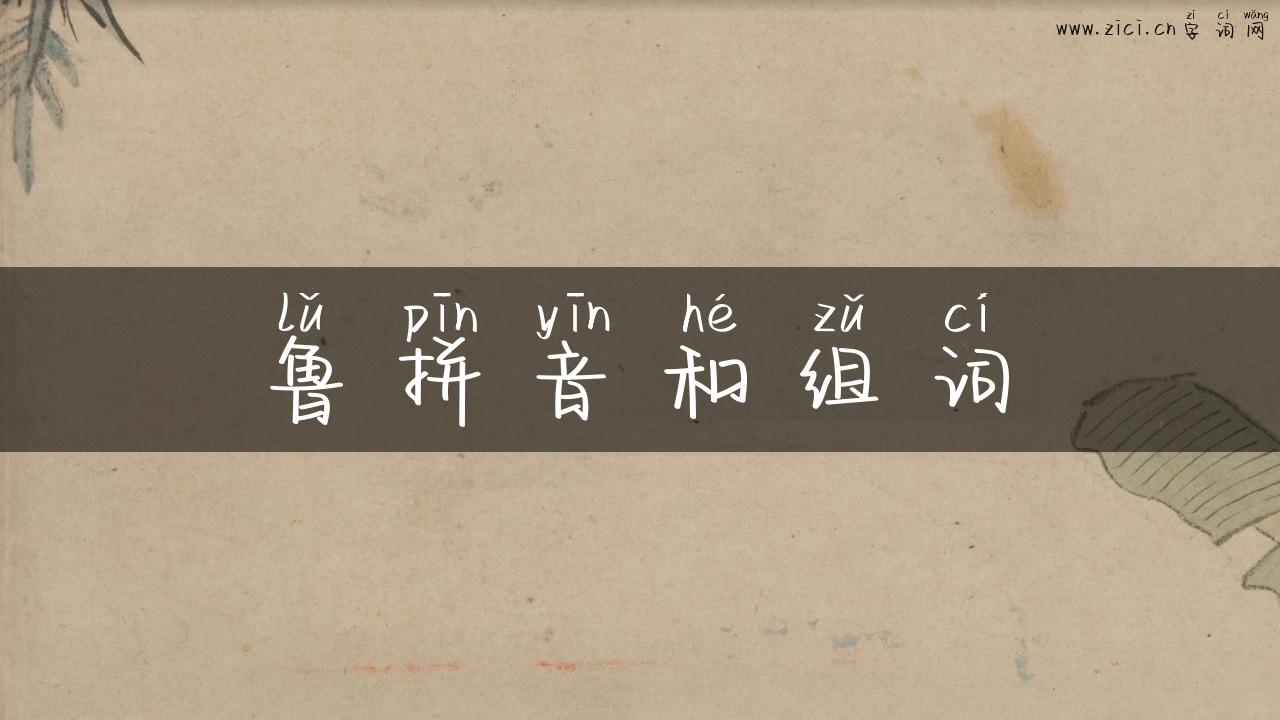 zì cí wǎng
www.zici.cn 字词网
lǔ pīn yīn hé zǔ cí
鲁拼音和组词